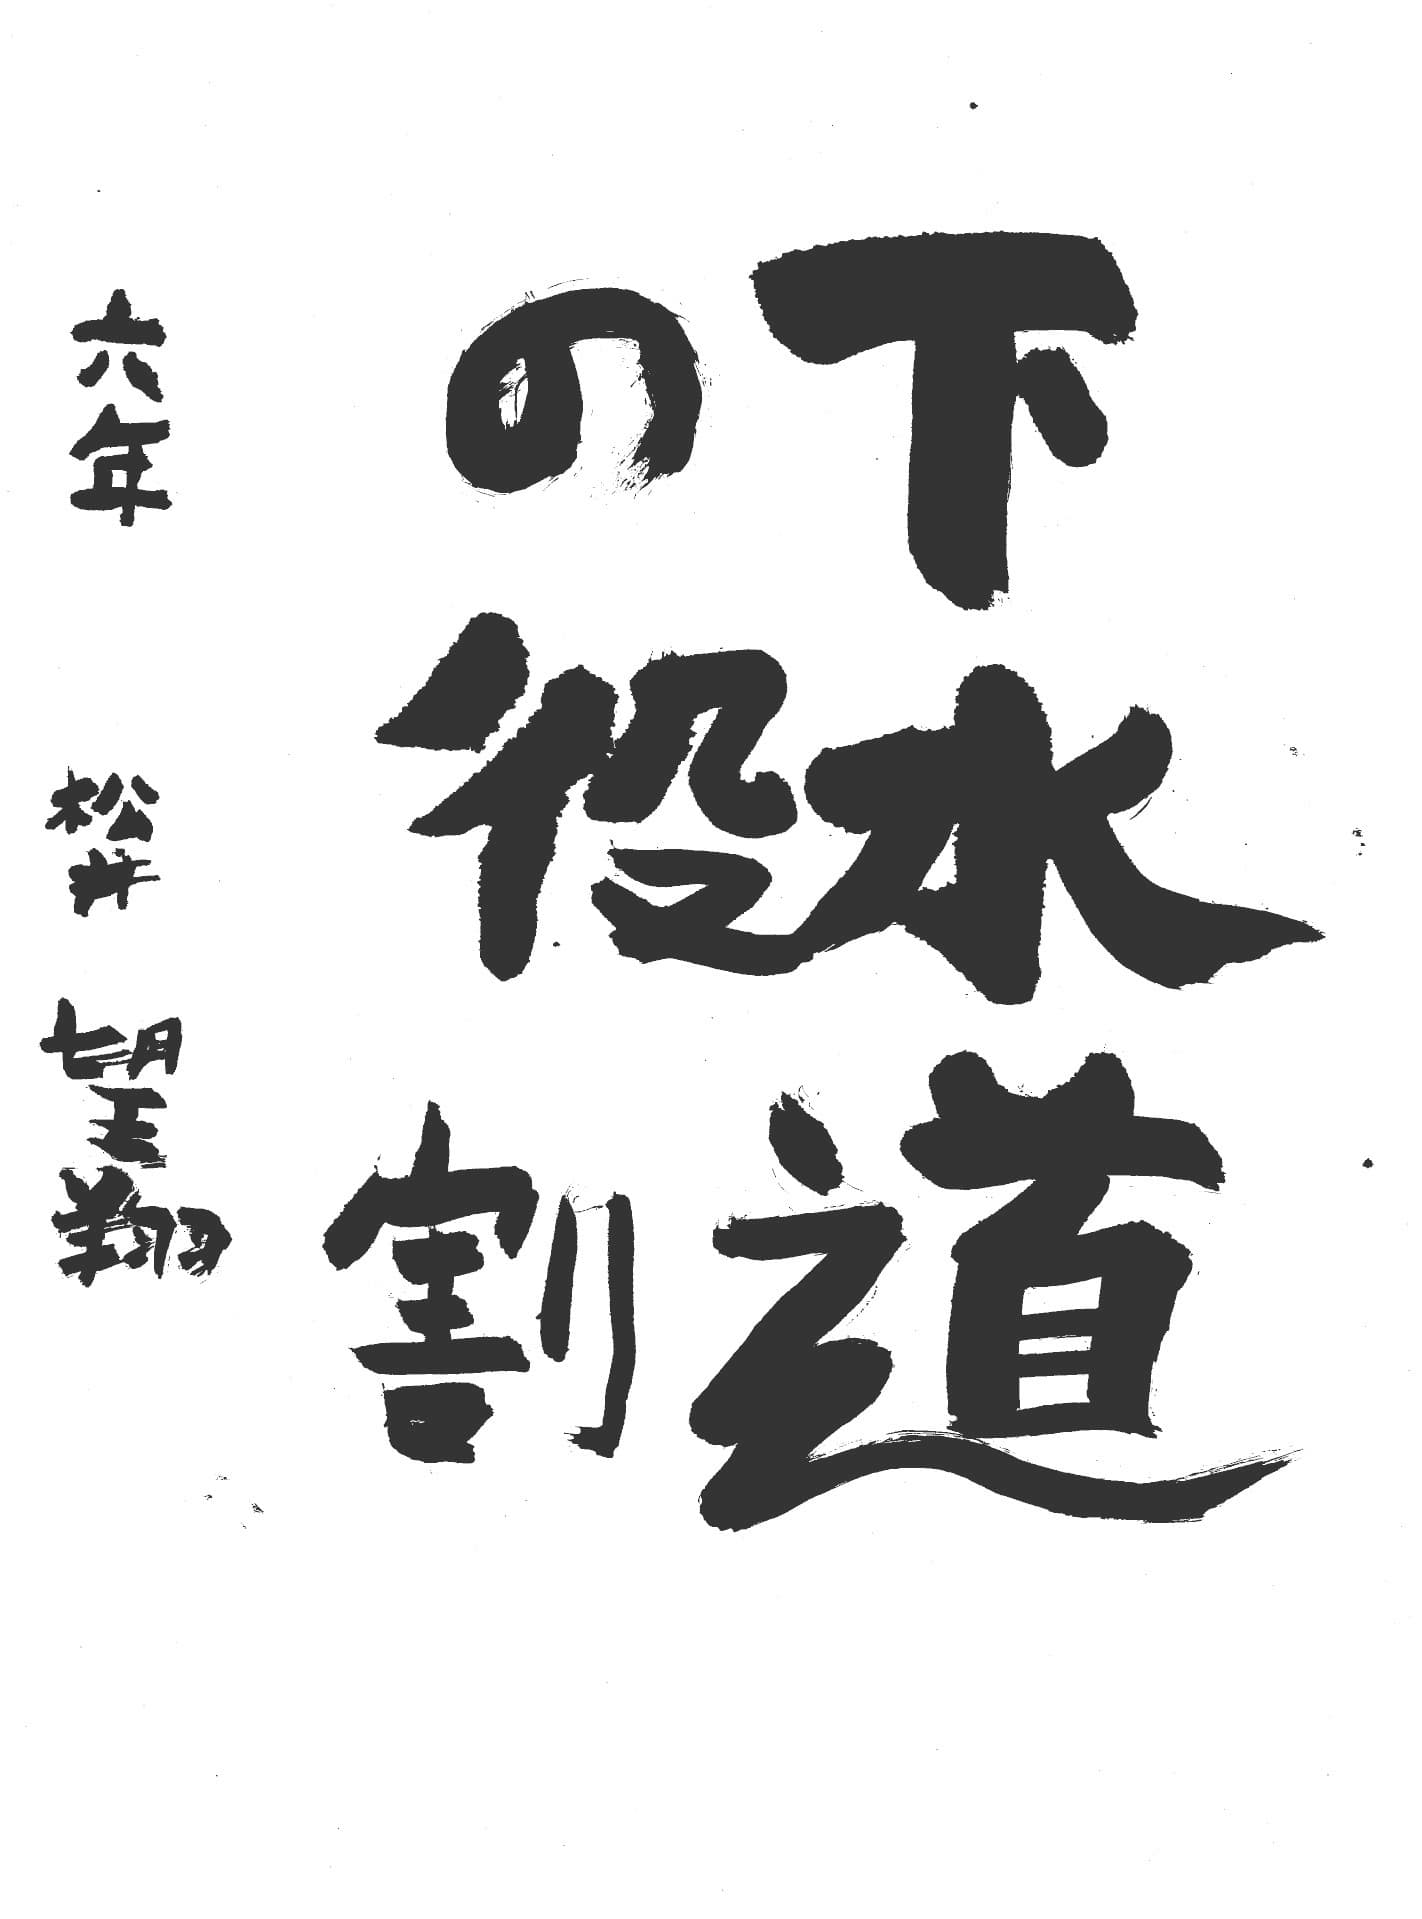 下水道
の役割
六年 松井 望翔